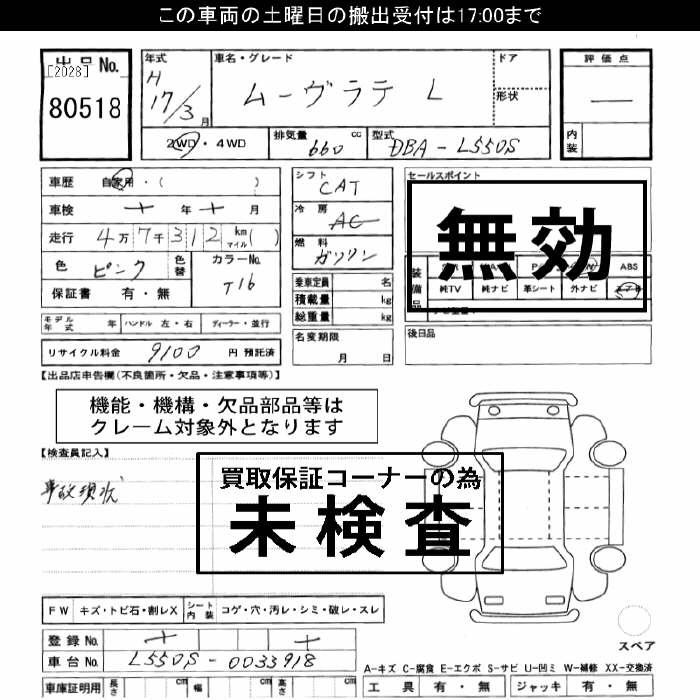 この車両の土曜日の搬出受付は17:00まで
出品No.
[2028]
80518
年式
H
17/3月
車名・グレード
ムーヴラテ L
ドア
形状
評価点
—
内装
2WD・4WD
排気量 660 cc
型式 DBA-L550S
車歴 自家用・( )
車検 年 月
走行 4万7千312 km マイル( )
色 ピンク
色替
カラーNo.
T16
保証書 有・無
シフト
CAT
冷房
AC
燃料
ガソリン
乗車定員 名
積載量 kg
総重量 kg
セールスポイント
無効
装備品
ABS
純TV 純ナビ 革シート 外ナビ
モデル年式 年 ハンドル 左・右 ディーラー・並行
リサイクル料金 9100 円 預託済
名変期限
月 日
後日品
【出品店申告欄(不良箇所・欠品・注意事項等)】
機能・機構・欠品部品等は
クレーム対象外となります
【検査員記入】
事故現状
買取保証コーナーの為
未検査
FW キズ・トビ石・割レX
シート内装 コゲ・穴・汚レ・シミ・破レ・スレ
登録No.
車台No. L550S-0033918
スペア
A-キズ C-腐食 E-エクボ S-サビ U-凹ミ W-補修 XX-交換済
車庫証明用 長さ cm 幅 cm 高さ cm
工具 有・無 ジャッキ 有・無